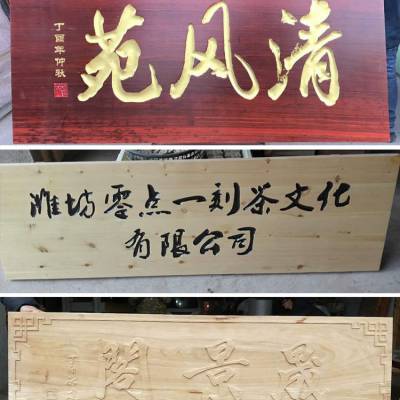 清风苑
丁酉年仲秋
潍坊零点一刻茶文化
有限公司
晟景閣